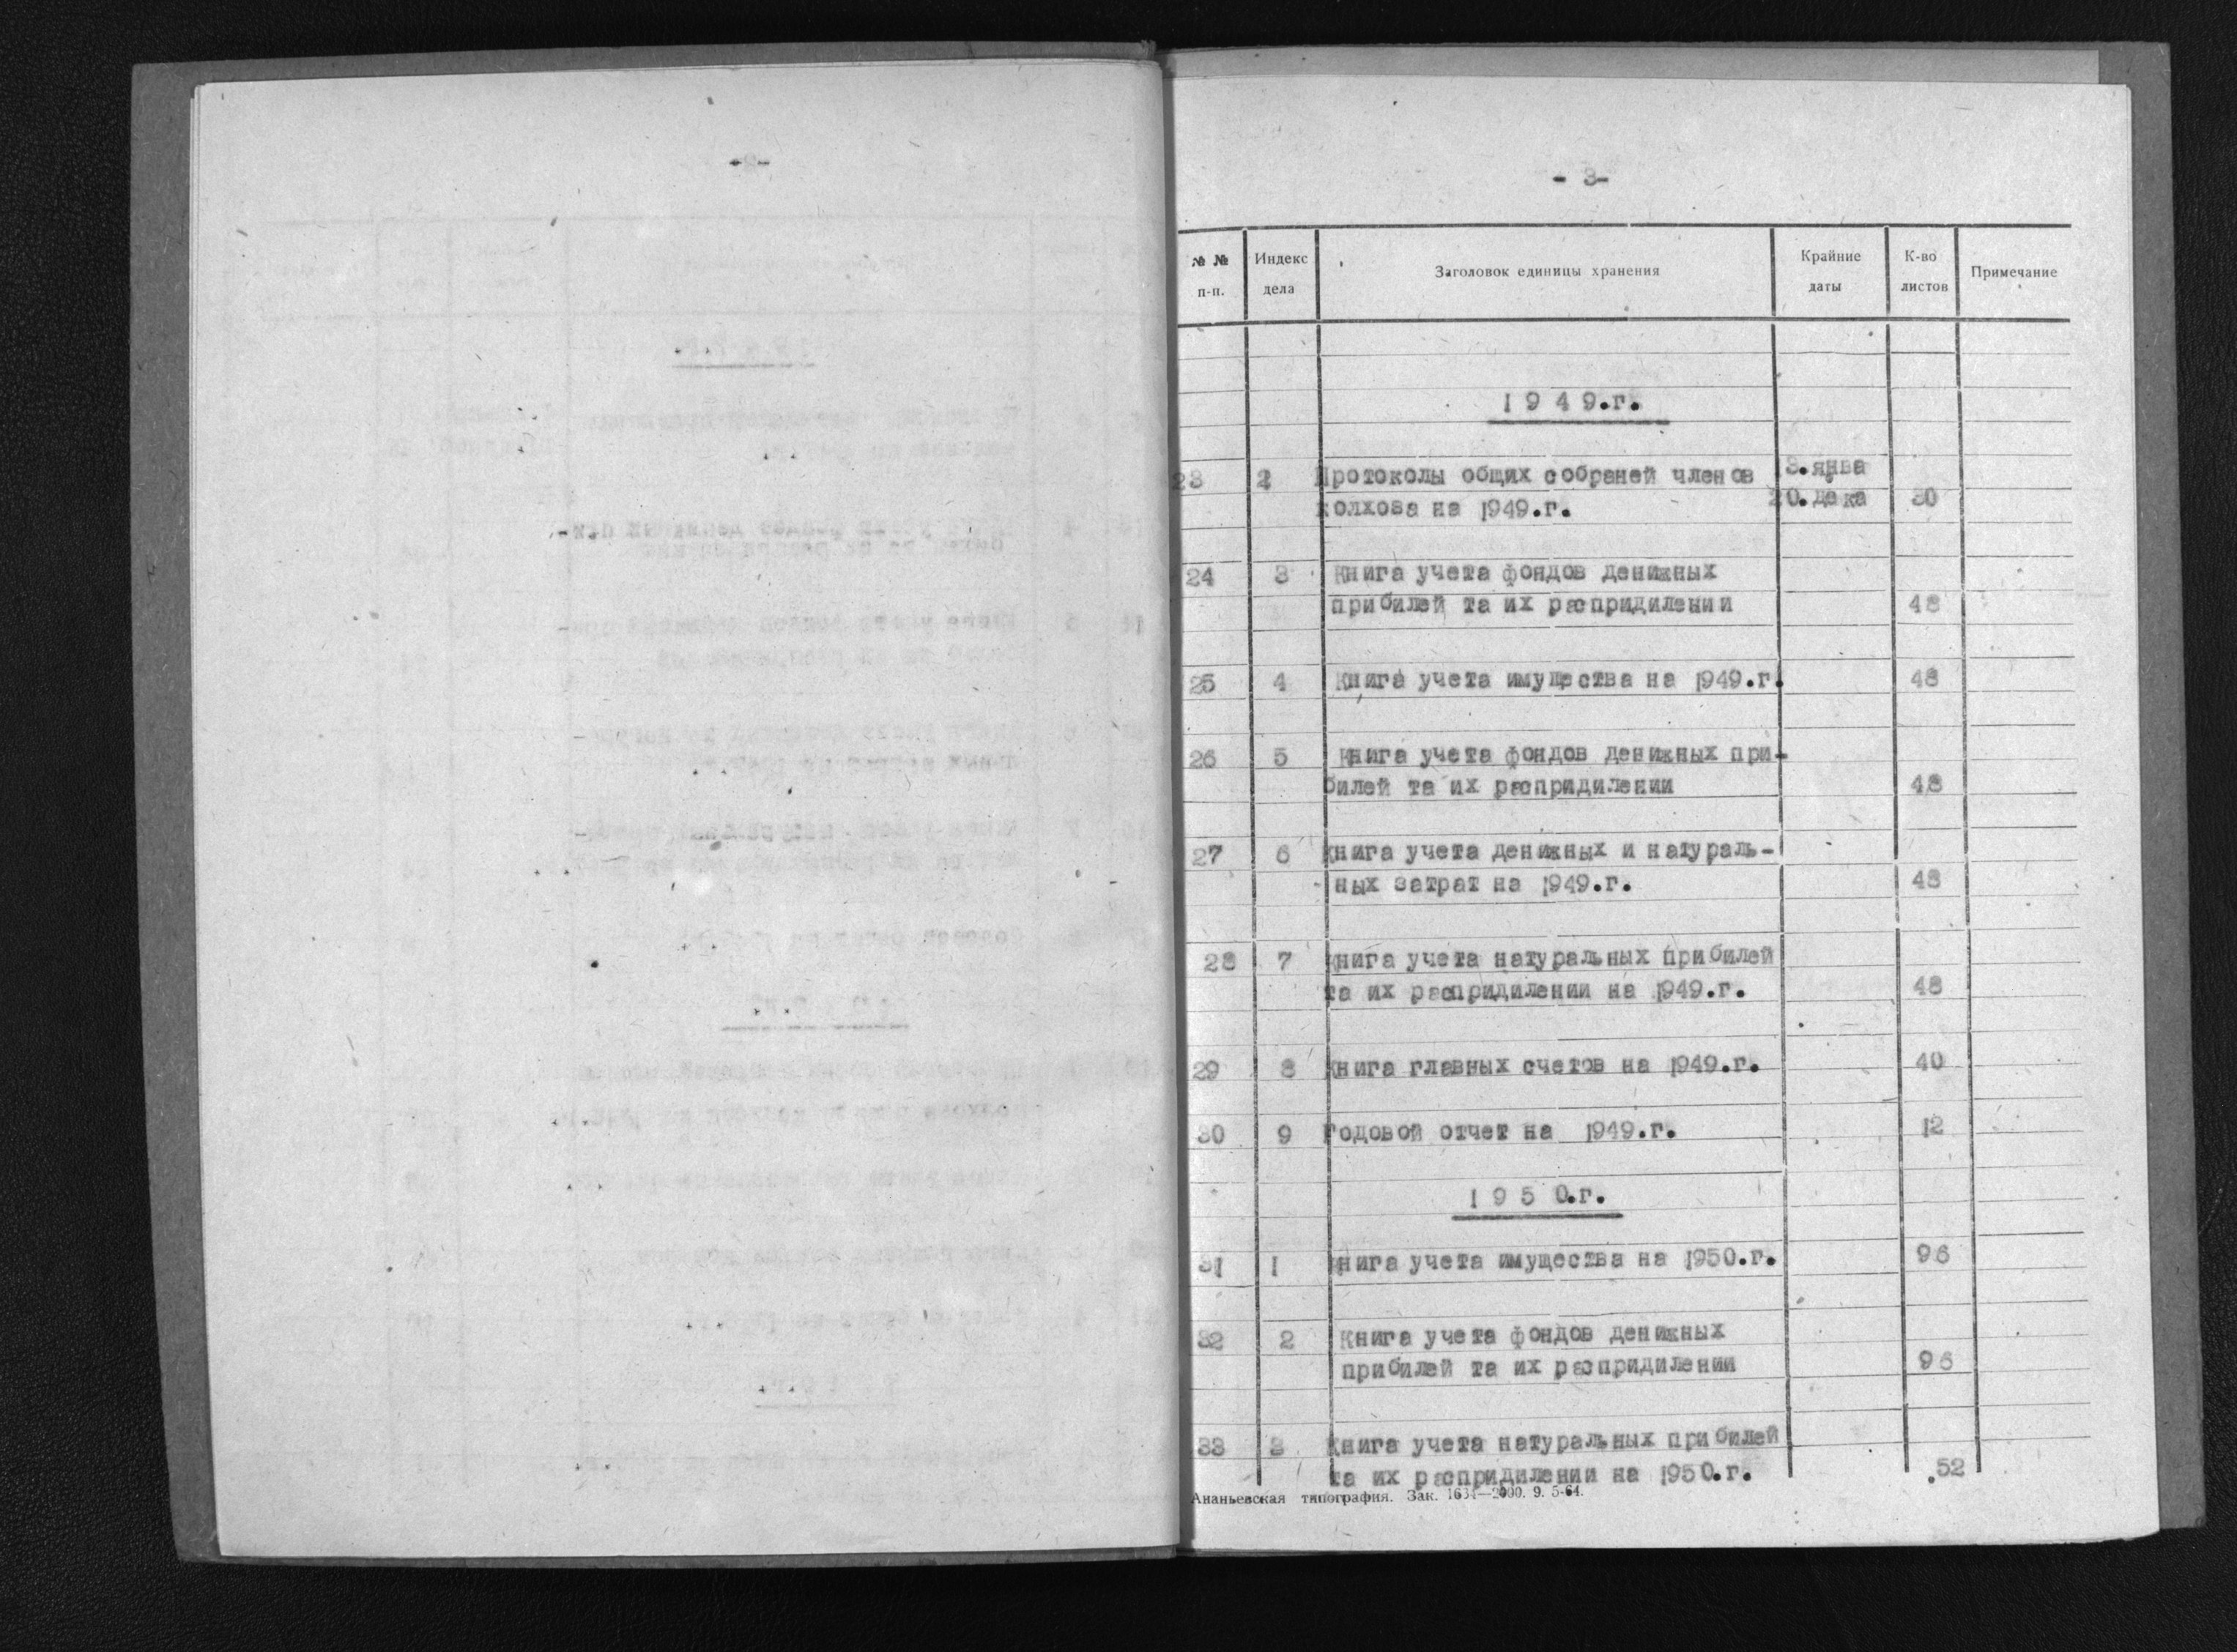 - 3-
№ № п-п. Индекс дела Заголовок единицы хранения Крайние даты К-во листов Примечание
1 9 4 9.г.
23 2 Протоколы общих собраней членов 3.янва
колхова на 1949.г. 20.дека 30
24 3 Книга учета фондов денижных
прибилей та их распридилении 48
25 4 Книга учета имущества на 1949.г. 48
26 5 Книга учета фондов денижных при-
билей та их распридилении 48
27 6 Книга учета денижных и натураль-
ных затрат на 1949.г. 48
28 7 Книга учета натуральных прибилей
та их распридилении на 1949.г. 48
29 8 Книга главных счетов на 1949.г. 40
30 9 Годовой отчет на 1949.г. 12
1 9 5 0.г.
31 1 Книга учета имущества на 1950.г. 96
32 2 Книга учета фондов денижных
прибилей та их распридилении 96
33 3 Книга учета натуральных прибилей
та их распридилении на 1950.г. 52
Ананьевская типография. Зак. 1634—2000. 9. 5-64.